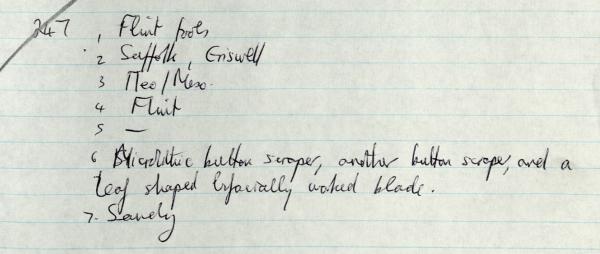 247 1 Flint tools
2 Suffolk, Eriswell
3 Neo/Meso.
4 Flint
5 —
6 Microlithic button scraper, another button scraper, and a
leaf shaped bifacially worked blade.
7. Sandy